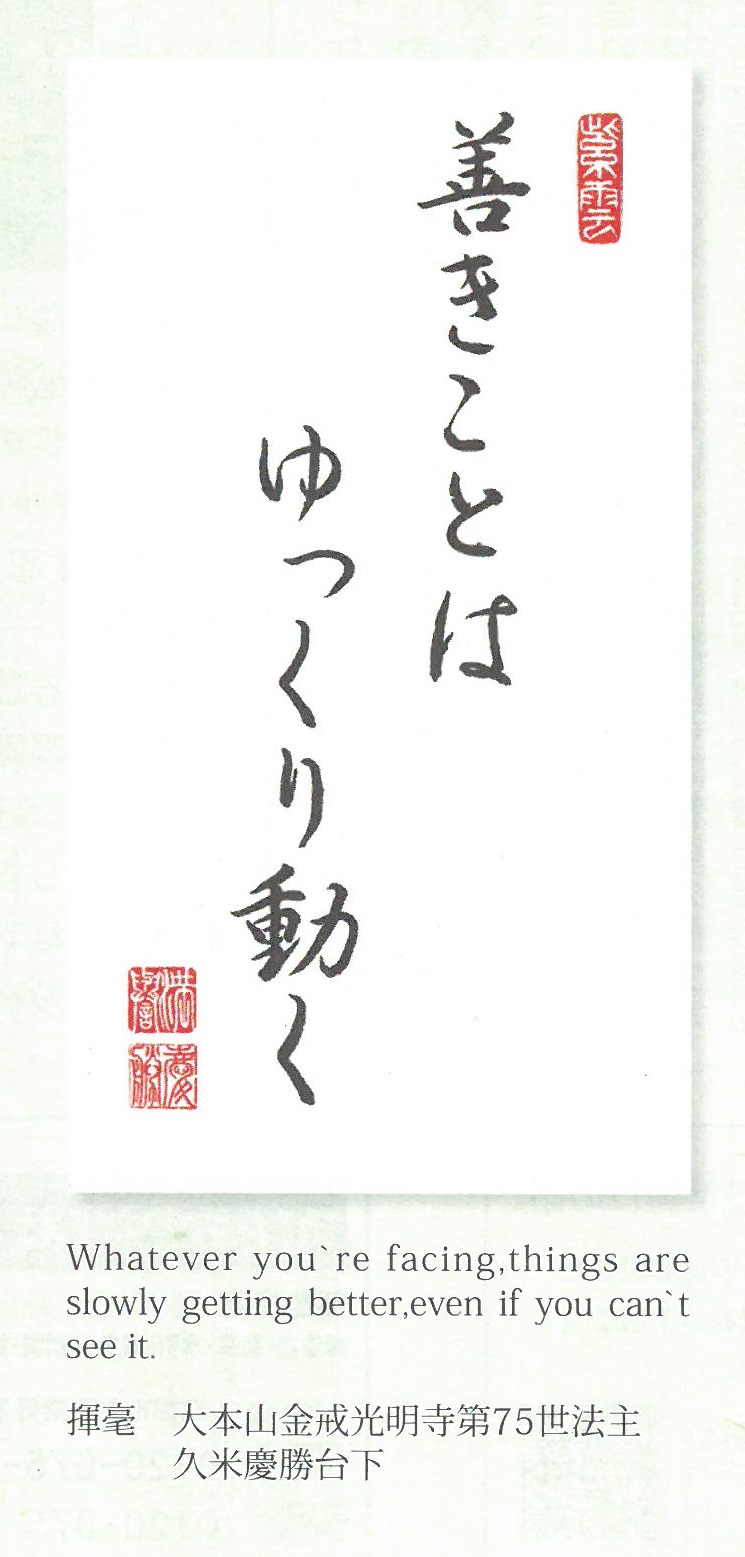 紫雲
善きことは
ゆっくり動く
満誉
慶勝
Whatever you`re facing,things are
slowly getting better,even if you can`t
see it.
揮毫　大本山金戒光明寺第75世法主
久米慶勝台下